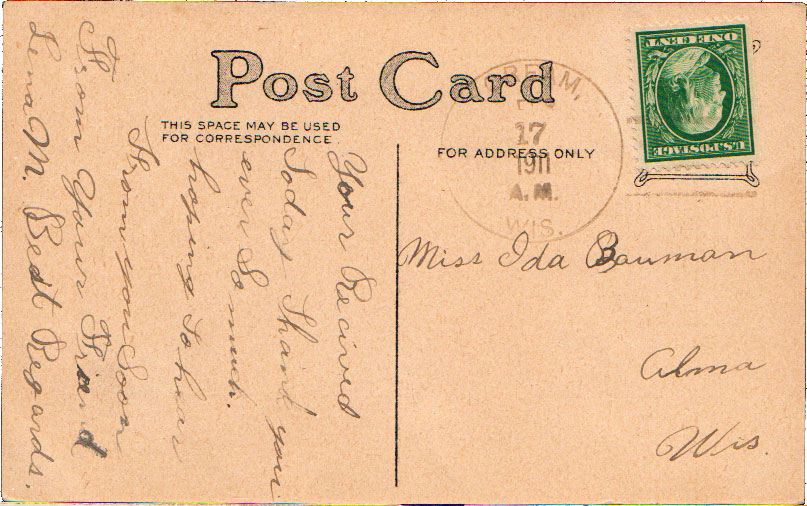 Post Card
THIS SPACE MAY BE USED
FOR CORRESPONDENCE
FOR ADDRESS ONLY
17
1911
A.M.
WIS.
U.S. POSTAGE
ONE CENT
Miss Ida Bauman
Alma
Wis.
Your Recived
Today Thank you
ever So much.
hoping To hear
From you Soon
From Your Friend
Lena M. Best Regards.